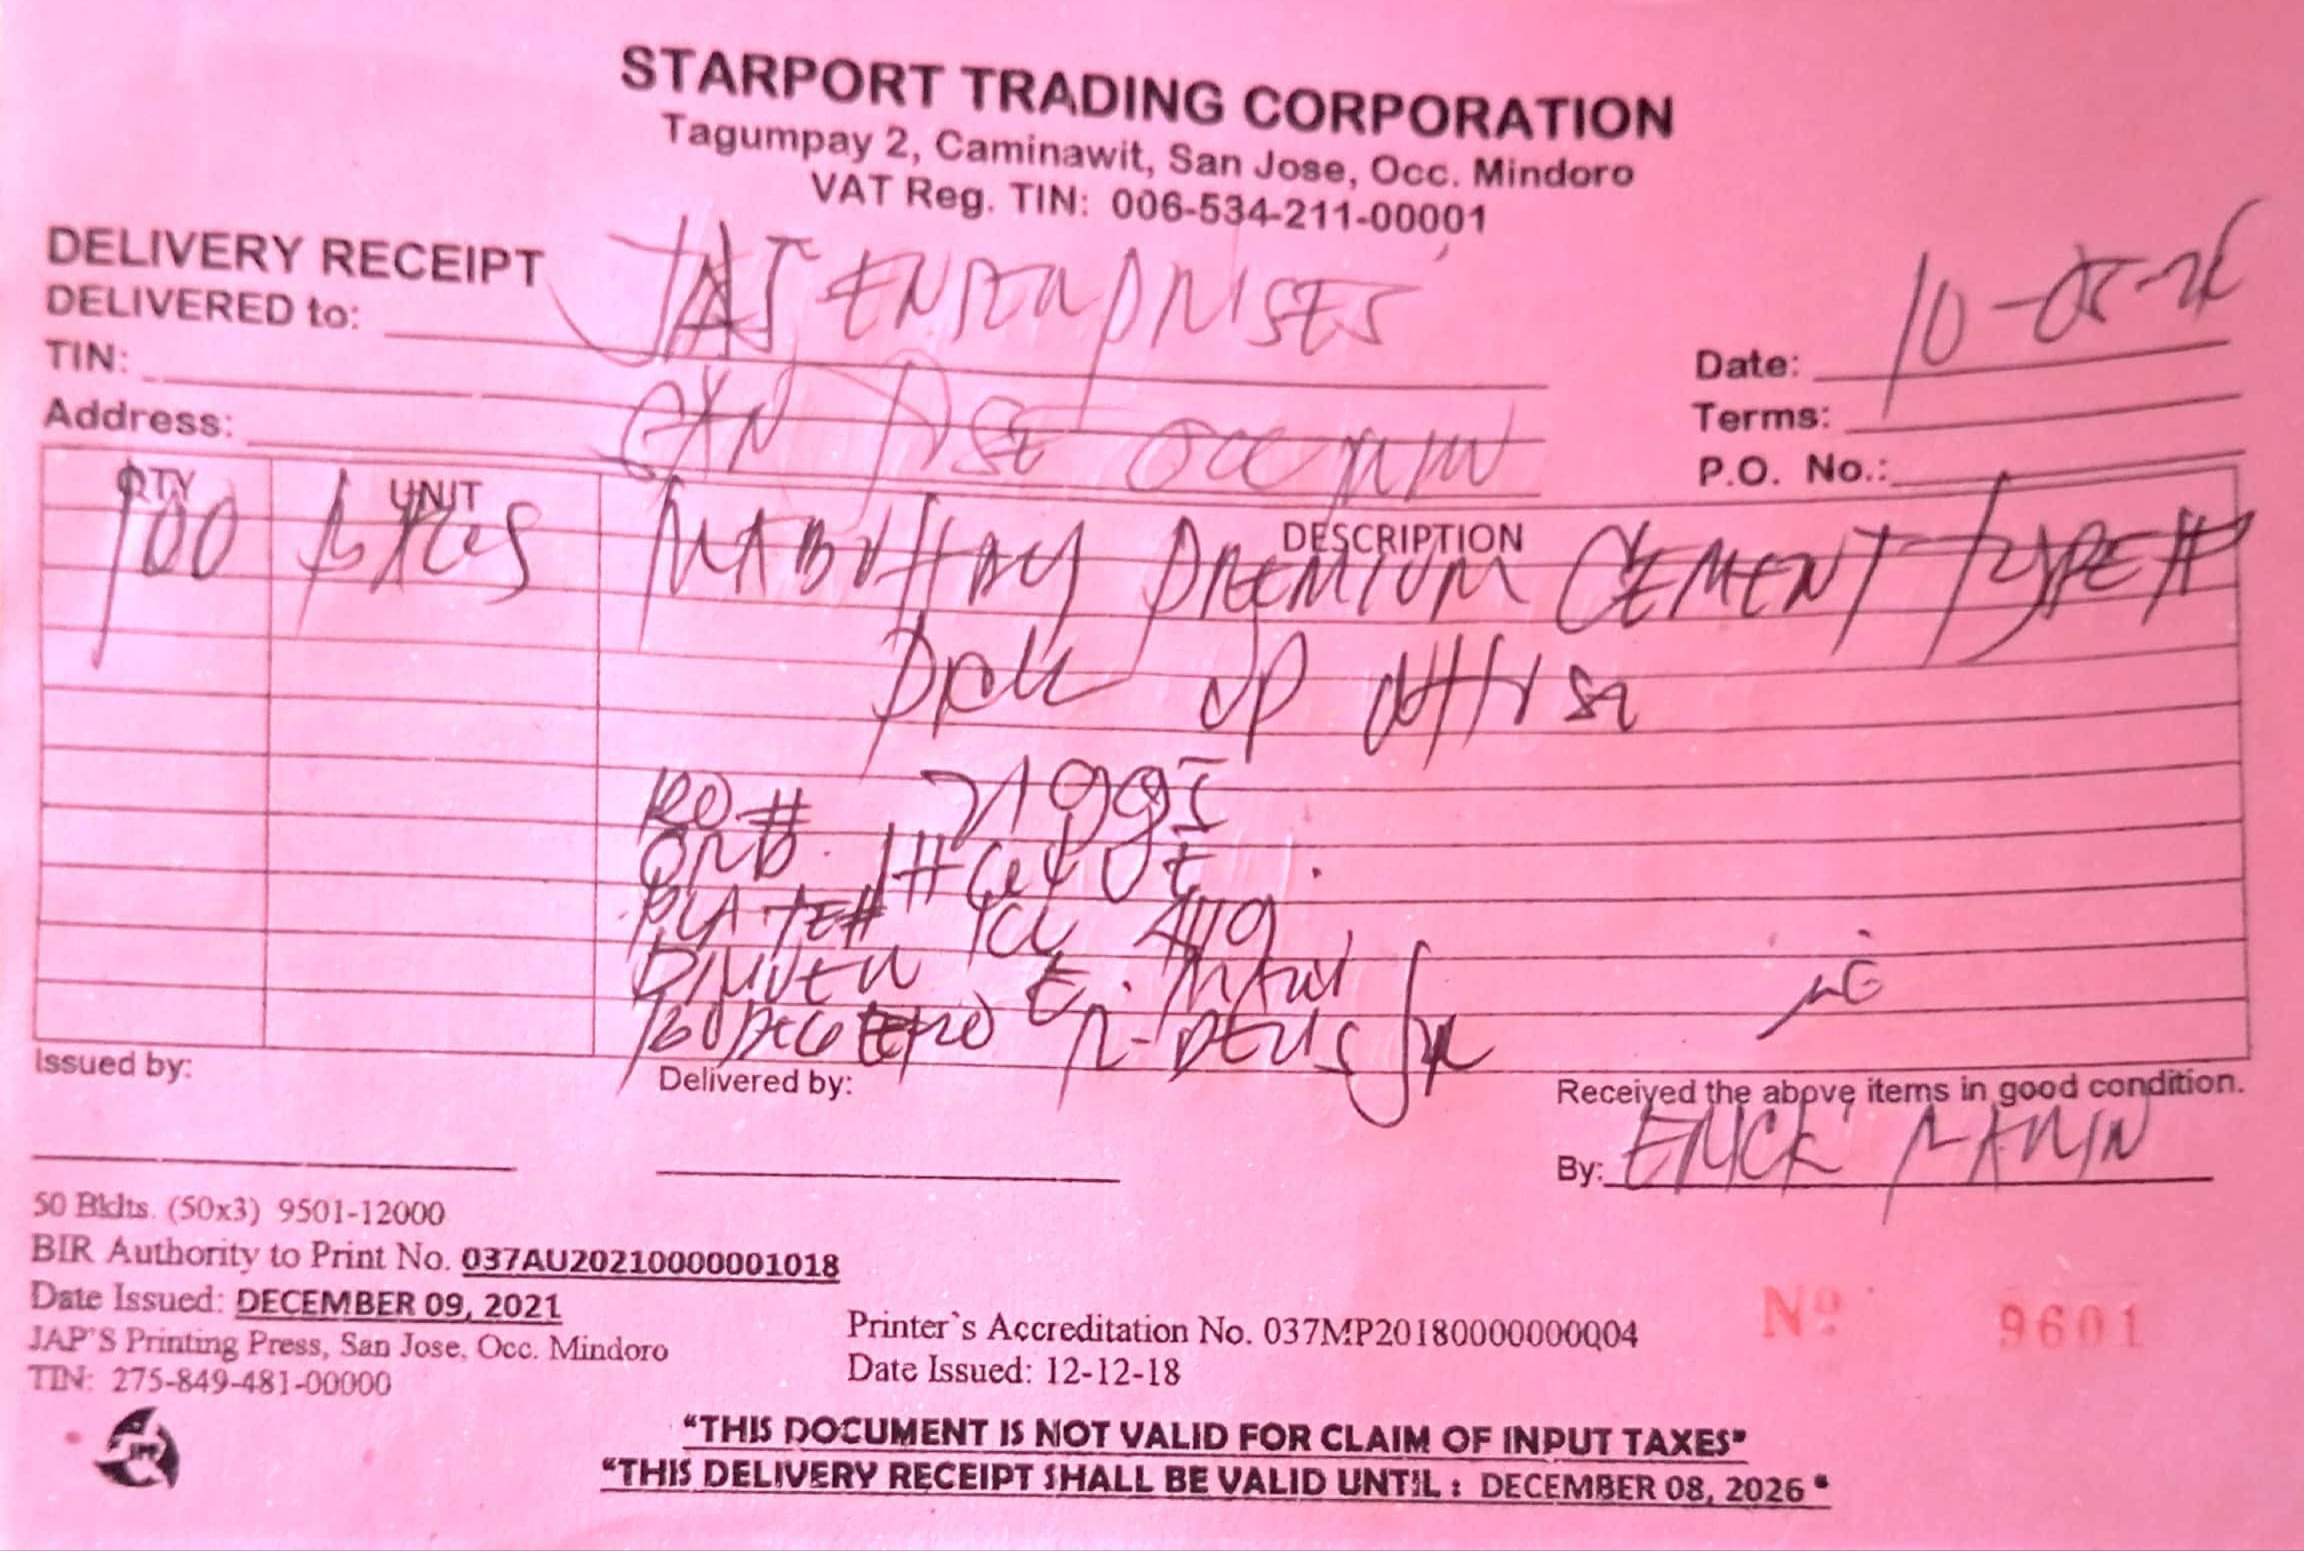 STARPORT TRADING CORPORATION
Tagumpay 2, Caminawit, San Jose, Occ. Mindoro
VAT Reg. TIN: 006-534-211-00001
DELIVERY RECEIPT
DELIVERED to: JAS ENTERPRISES
TIN:
Address: SAN JOSE OCC MIN
Date: 10-05-26
Terms:
P.O. No.:
QTY UNIT DESCRIPTION
100 BAGS MABUHAY PREMIUM CEMENT TYPE
PICK UP
RO#
PLATE#
DRIVER
Issued by:
Delivered by:
Received the above items in good condition.
By: ERICK MARIN
50 Bklts. (50x3) 9501-12000
BIR Authority to Print No. 037AU20210000001018
Date Issued: DECEMBER 09, 2021
JAP'S Printing Press, San Jose, Occ. Mindoro
TIN: 275-849-481-00000
Printer`s Accreditation No. 037MP20180000000004
Date Issued: 12-12-18
Nº 9601
"THIS DOCUMENT IS NOT VALID FOR CLAIM OF INPUT TAXES"
"THIS DELIVERY RECEIPT SHALL BE VALID UNTIL : DECEMBER 08, 2026 "